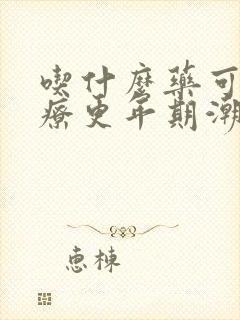 喫什麼藥可
療更年期潮
惠棟